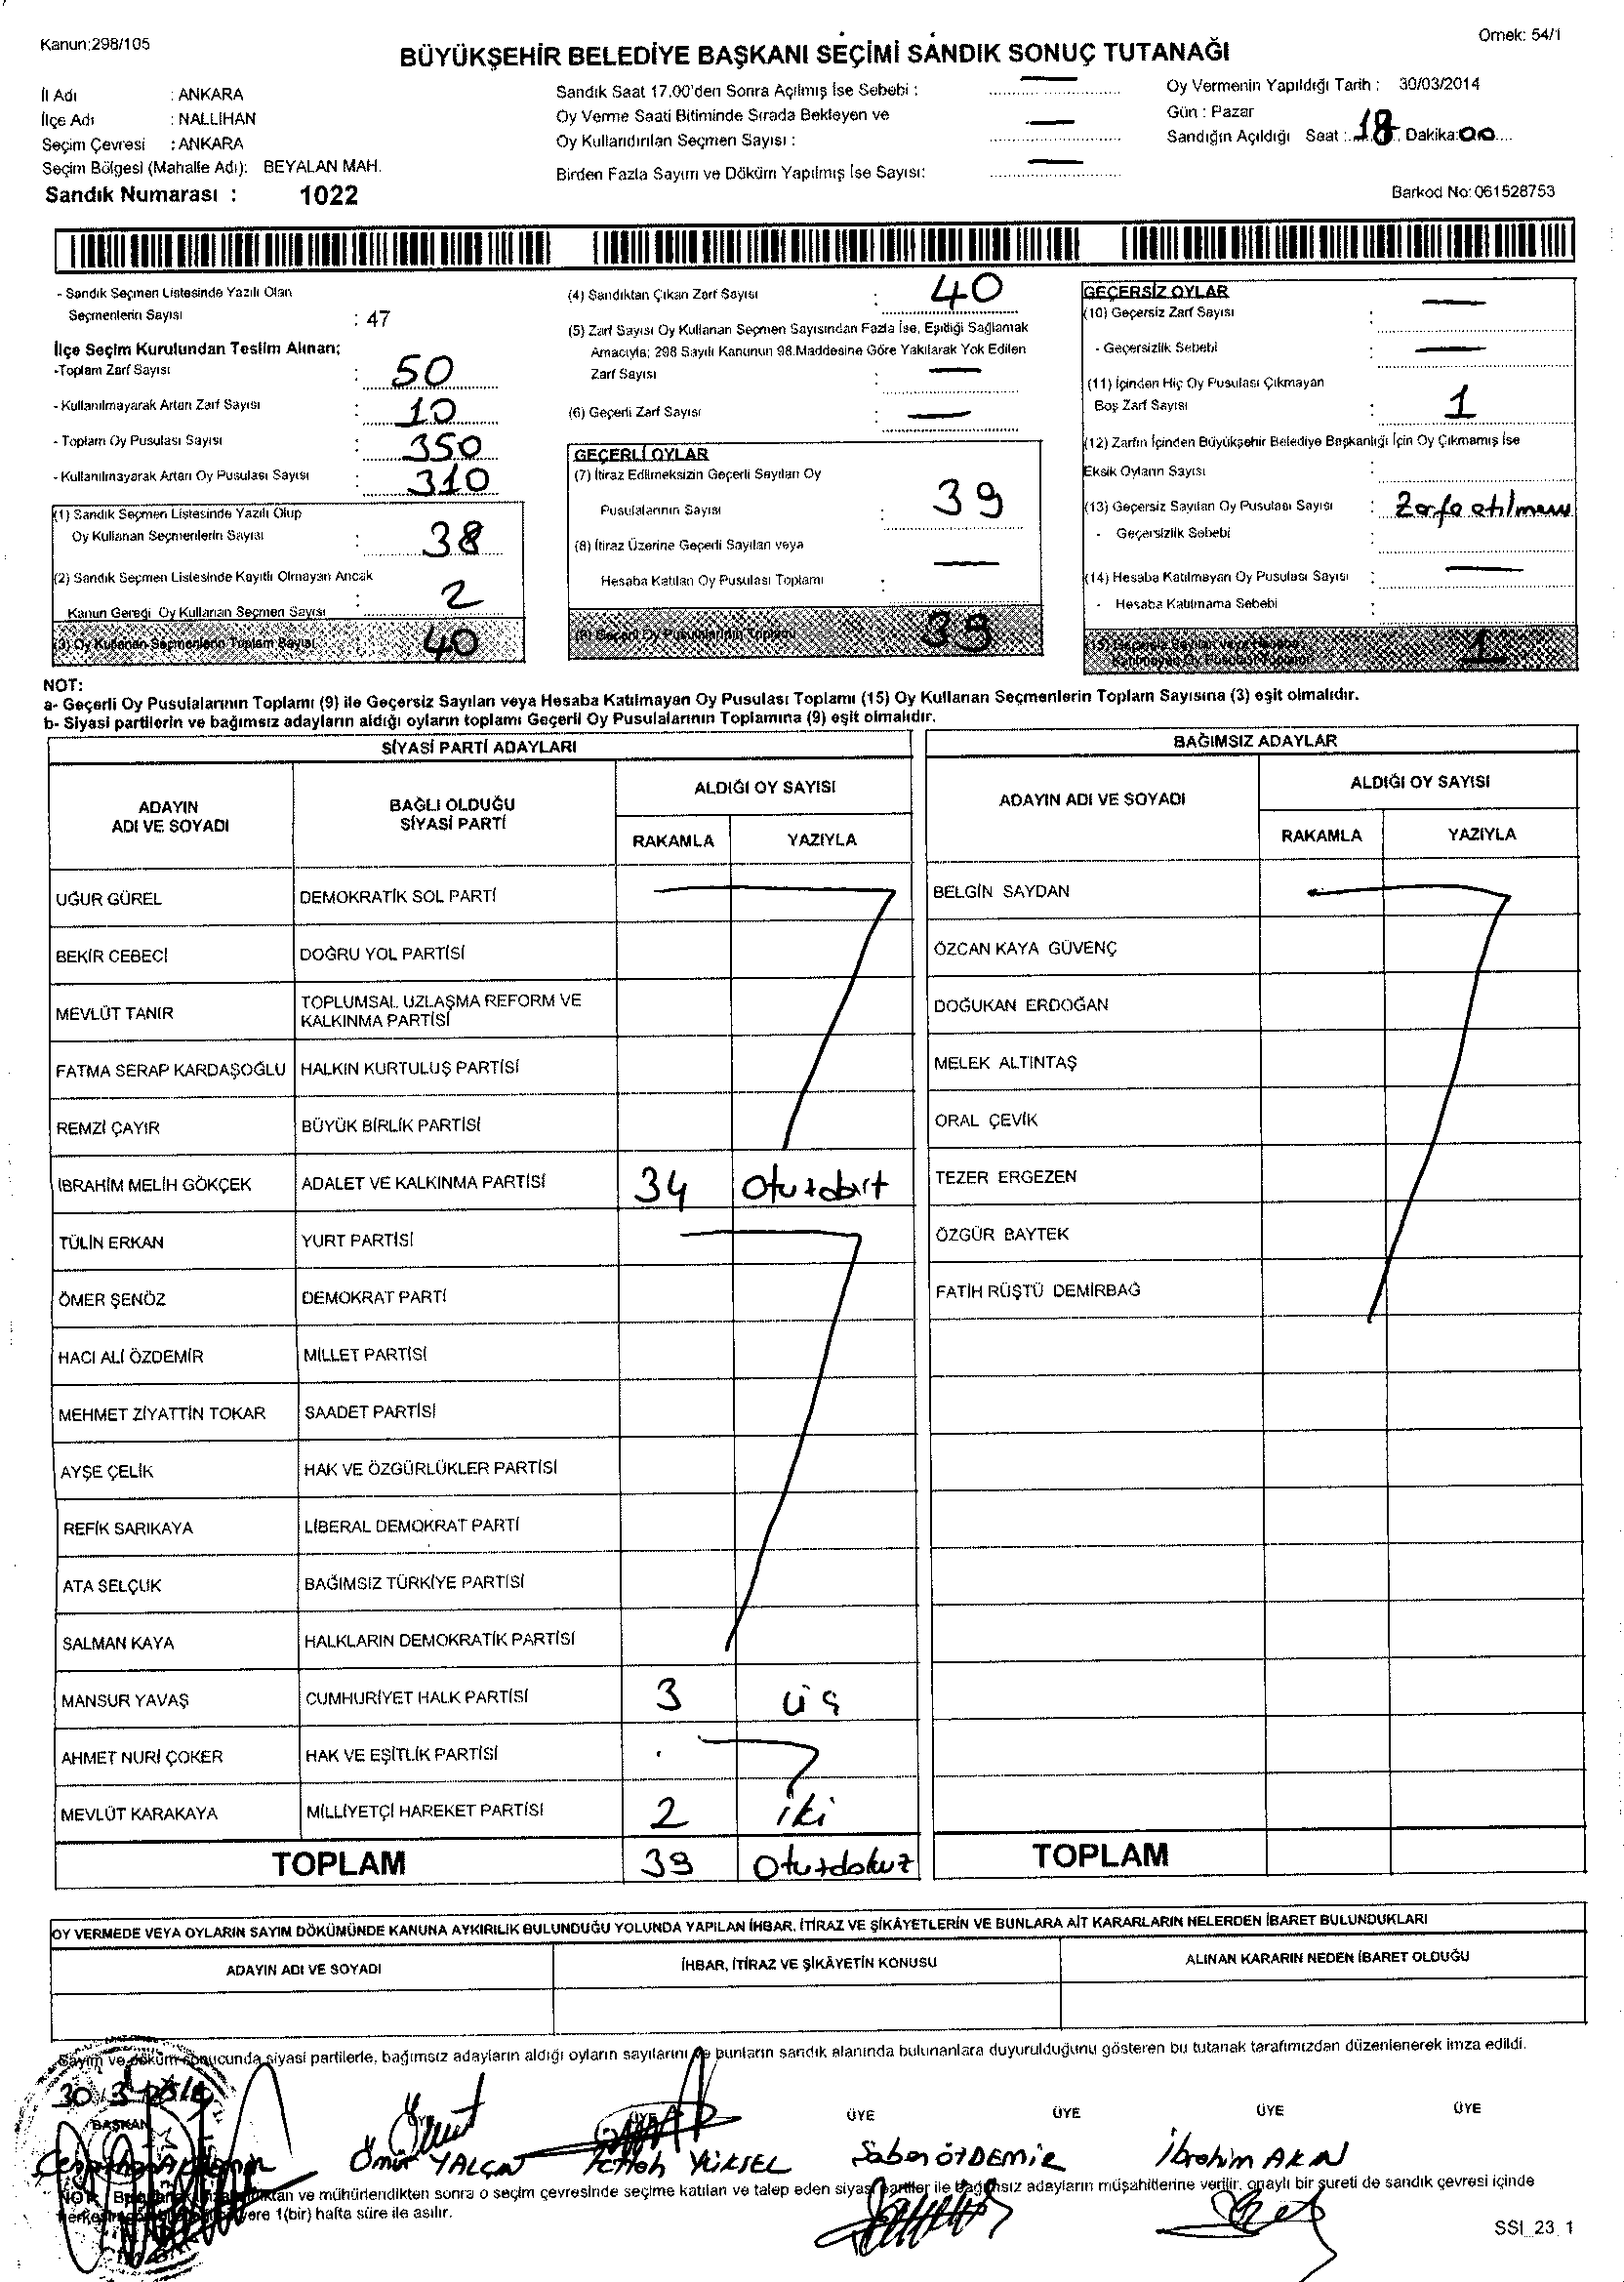 Kanun:298/105
Örnek: 54/1
BÜYÜKŞEHİR BELEDİYE BAŞKANI SEÇİMİ SANDIK SONUÇ TUTANAĞI
İl Adı : ANKARA
İlçe Adı : NALLIHAN
Seçim Çevresi : ANKARA
Seçim Bölgesi (Mahalle Adı): BEYALAN MAH.
Sandık Numarası : 1022
Sandık Saat 17.00'den Sonra Açılmış İse Sebebi : —
Oy Verme Saati Bitiminde Sırada Bekleyen ve
Oy Kullandırılan Seçmen Sayısı : —
Birden Fazla Sayım ve Döküm Yapılmış İse Sayısı: —
Oy Vermenin Yapıldığı Tarih : 30/03/2014
Gün : Pazar
Sandığın Açıldığı Saat : 18 Dakika: 00
Barkod No: 061528753
- Sandık Seçmen Listesinde Yazılı Olan
Seçmenlerin Sayısı : 47
İlçe Seçim Kurulundan Teslim Alınan;
-Toplam Zarf Sayısı : 50
- Kullanılmayarak Artan Zarf Sayısı : 10
- Toplam Oy Pusulası Sayısı : 350
- Kullanılmayarak Artan Oy Pusulası Sayısı : 310
(1) Sandık Seçmen Listesinde Yazılı Olup
Oy Kullanan Seçmenlerin Sayısı : 38
(2) Sandık Seçmen Listesinde Kayıtlı Olmayan Ancak
Kanun Gereği Oy Kullanan Seçmen Sayısı : 2
(3) Oy Kullanan Seçmenlerin Toplam Sayısı 40
(4) Sandıktan Çıkan Zarf Sayısı : 40
(5) Zarf Sayısı Oy Kullanan Seçmen Sayısından Fazla İse, Eşitliği Sağlamak
Amacıyla; 298 Sayılı Kanunun 98.Maddesine Göre Yakılarak Yok Edilen
Zarf Sayısı : —
(6) Geçerli Zarf Sayısı : —
GEÇERLİ OYLAR
(7) İtiraz Edilmeksizin Geçerli Sayılan Oy
Pusulalarının Sayısı : 39
(8) İtiraz Üzerine Geçerli Sayılan veya
Hesaba Katılan Oy Pusulası Toplamı : —
(9) Geçerli Oy Pusulalarının Toplamı 39
GEÇERSİZ OYLAR
(10) Geçersiz Zarf Sayısı : —
- Geçersizlik Sebebi : —
(11) İçinden Hiç Oy Pusulası Çıkmayan
Boş Zarf Sayısı : 1
(12) Zarfın İçinden Büyükşehir Belediye Başkanlığı İçin Oy Çıkmamış İse
Eksik Oyların Sayısı :
(13) Geçersiz Sayılan Oy Pusulası Sayısı : Zarfa atılmamış
- Geçersizlik Sebebi :
(14) Hesaba Katılmayan Oy Pusulası Sayısı : —
- Hesaba Katılmama Sebebi :
(15) Geçersiz Sayılan veya Hesaba
Katılmayan Oy Pusulası Toplamı 1
NOT:
a- Geçerli Oy Pusulalarının Toplamı (9) ile Geçersiz Sayılan veya Hesaba Katılmayan Oy Pusulası Toplamı (15) Oy Kullanan Seçmenlerin Toplam Sayısına (3) eşit olmalıdır.
b- Siyasi partilerin ve bağımsız adayların aldığı oyların toplamı Geçerli Oy Pusulalarının Toplamına (9) eşit olmalıdır.
SİYASİ PARTİ ADAYLARI
ADAYIN ADI VE SOYADI BAĞLI OLDUĞU SİYASİ PARTİ ALDIĞI OY SAYISI
RAKAMLA YAZIYLA
UĞUR GÜREL DEMOKRATİK SOL PARTİ —
BEKİR CEBECİ DOĞRU YOL PARTİSİ
MEVLÜT TANIR TOPLUMSAL UZLAŞMA REFORM VE KALKINMA PARTİSİ
FATMA SERAP KARDAŞOĞLU HALKIN KURTULUŞ PARTİSİ
REMZİ ÇAYIR BÜYÜK BİRLİK PARTİSİ
İBRAHİM MELİH GÖKÇEK ADALET VE KALKINMA PARTİSİ 34 Otuzdört
TÜLİN ERKAN YURT PARTİSİ —
ÖMER ŞENÖZ DEMOKRAT PARTİ
HACI ALİ ÖZDEMİR MİLLET PARTİSİ
MEHMET ZİYATTİN TOKAR SAADET PARTİSİ
AYŞE ÇELİK HAK VE ÖZGÜRLÜKLER PARTİSİ
REFİK SARIKAYA LİBERAL DEMOKRAT PARTİ
ATA SELÇUK BAĞIMSIZ TÜRKİYE PARTİSİ
SALMAN KAYA HALKLARIN DEMOKRATİK PARTİSİ
MANSUR YAVAŞ CUMHURİYET HALK PARTİSİ 3 üç
AHMET NURİ ÇOKER HAK VE EŞİTLİK PARTİSİ —
MEVLÜT KARAKAYA MİLLİYETÇİ HAREKET PARTİSİ 2 iki
TOPLAM 39 Otuzdokuz
BAĞIMSIZ ADAYLAR
ADAYIN ADI VE SOYADI ALDIĞI OY SAYISI
RAKAMLA YAZIYLA
BELGİN SAYDAN —
ÖZCAN KAYA GÜVENÇ
DOĞUKAN ERDOĞAN
MELEK ALTINTAŞ
ORAL ÇEVİK
TEZER ERGEZEN
ÖZGÜR BAYTEK
FATİH RÜŞTÜ DEMİRBAĞ
TOPLAM
OY VERMEDE VEYA OYLARIN SAYIM DÖKÜMÜNDE KANUNA AYKIRILIK BULUNDUĞU YOLUNDA YAPILAN İHBAR, İTİRAZ VE ŞİKÂYETLERİN VE BUNLARA AİT KARARLARIN NELERDEN İBARET BULUNDUKLARI
ADAYIN ADI VE SOYADI İHBAR, İTİRAZ VE ŞİKÂYETİN KONUSU ALINAN KARARIN NEDEN İBARET OLDUĞU
Sayım ve döküm sonucunda siyasi partilerle, bağımsız adayların aldığı oyların sayılarını ve bunların sandık alanında bulunanlara duyurulduğunu gösteren bu tutanak tarafımızdan düzenlenerek imza edildi.
30.3.2014
BAŞKAN ÜYE ÜYE ÜYE ÜYE ÜYE
Ömür YALÇIN Fettah YÜKSEL Saban ÖZDEMİR İbrahim AKIN
NOT: ve mühürlendikten sonra o seçim çevresinde seçime katılan ve talep eden siyasi partiler ile bağımsız adayların müşahitlerine verilir, onaylı bir sureti de sandık çevresi içinde
1(bir) hafta süre ile asılır.
SSI_23_1